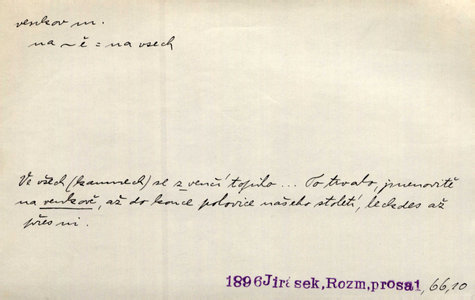 venkov m.
na ~ě = na vsech
Ve všech (kamnech) se z venčí topilo ... To trvalo, jmenovitě
na venkově, až do konce polovice našeho století, leckdes až
přes ni.
1896 Jirásek, Rozm, prosa I, 66,10